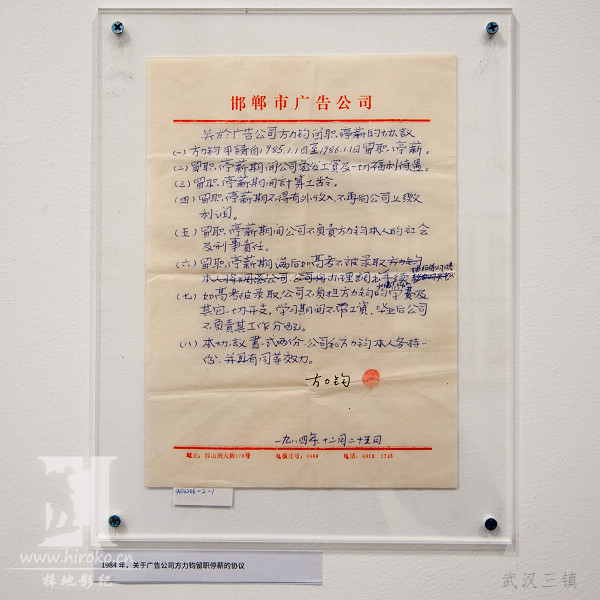 邯郸市广告公司
关於广告公司方力钧留职停薪的协議
(一) 方力钧申請自1985.1.1日至1986.1.1日留职停薪。
(二) 留职停薪期间公司 工資及一切福利待遇。
(三) 留职停薪期间計算工龄。
(四) 留职停薪期不得有外收入不再向公司上缴
利润。
(五) 留职停薪期间公司不負責方力钧本人的社会
及刑事责任。
(六) 留职停薪期满后如高考不被录取方力钧
本人 公司 办理 手续
(七) 如高考被录取公司不负担方力钧的学費及
其它一切开支,学习期间不带工資,毕业后公司
不负责其工作分配。
(八) 本协議書一式两份,公司和方力钧本人各持一
份,并具有同等效力。
方力钧
一九八四年十二月二十五日
地址:陵山南大街178号 电报挂号:8099 电话:4913 2745
1984 年,关于广告公司方力钧留职停薪的协议
www.hiroko.cn
林地影纪
武汉三镇